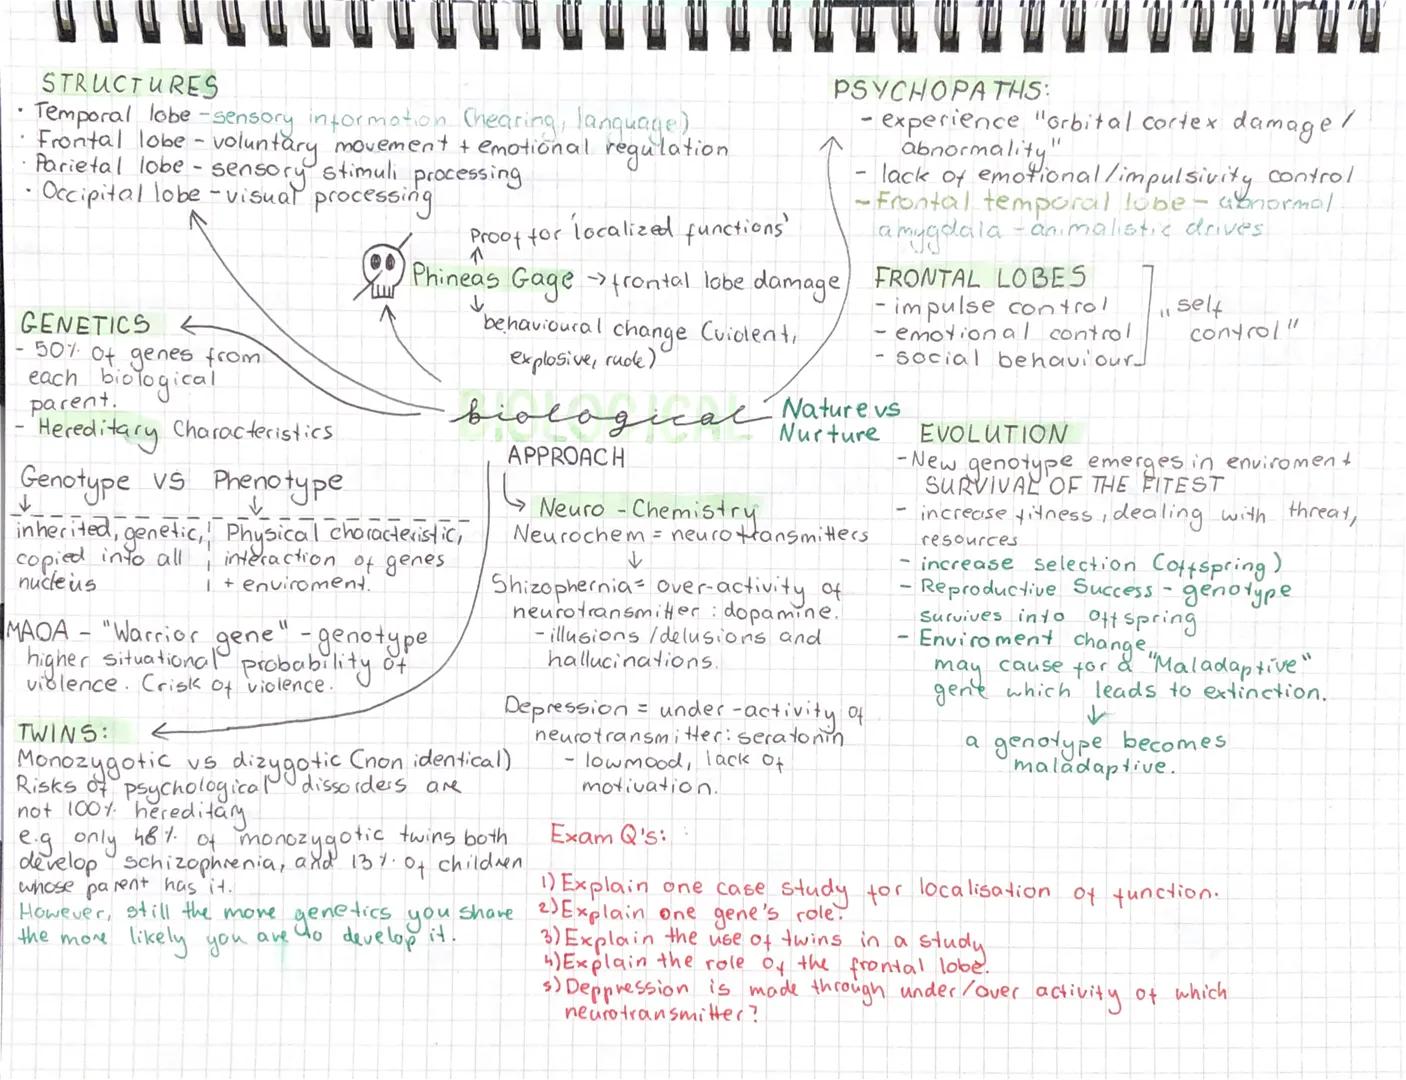 STRUCTURES
· Temporal lobe - sensory information (hearing, language)
· Frontal lobe - voluntary movement + emotional regulation
· Parietal lobe - sensory stimuli processing
· Occipital lobe - visual processing
Proof for 'localized functions'
↑
Phineas Gage → frontal lobe damage
↓
behavioural change (violent,
explosive, rude)
PSYCHOPATHS:
- experience "orbital cortex damage /
abnormality"
- lack of emotional/impulsivity control
- Frontal temporal lobe - abnormal
amygdala - animalistic drives
FRONTAL LOBES
- impulse control
- emotional control
- social behaviour
"self
control"
GENETICS
- 50% of genes from
each biological
parent.
- Hereditary Characteristics
Genotype VS Phenotype
↓ ↓
inherited, genetic,
copied into all
nucleus
Physical characteristic,
interaction of genes
+ enviroment.
MAOA - "Warrior gene" - genotype
higher situational probability of
violence. Crisk of violence.
BIOLOGICAL
biological
APPROACH
Nature vs
Nurture
→ Neuro - Chemistry
Neurochem = neurotransmitters
↓
Shizophernia = over-activity of
neurotransmitter : dopamine.
- illusions / delusions and
hallucinations.
Depression = under - activity of
neurotransmitter: seratonin
- lowmood, lack of
motivation.
EVOLUTION
- New genotype emerges in enviroment
SURVIVAL OF THE FITEST
- increase fitness, dealing with threat,
resources
- increase selection (offspring)
- Reproductive Success - genotype
survives into offspring
- Enviroment change
may cause for a "Maladaptive"
gene which leads to extinction.
↓
a genotype becomes
maladaptive.
TWINS:
Monozygotic vs dizygotic (non identical)
Risks of psychological dissorders are
not 100% hereditary
e.g only 48% of monozygotic twins both
develop schizophrenia, and 13% of children
whose parent has it.
However, still the more genetics you share
the more likely you are to develop it.
Exam Q's:
1) Explain one case study for localisation of function.
2) Explain one gene's role.
3) Explain the use of twins in a study
4) Explain the role of the frontal lobe.
5) Deppression is made through under/over activity of which
neurotransmitter?